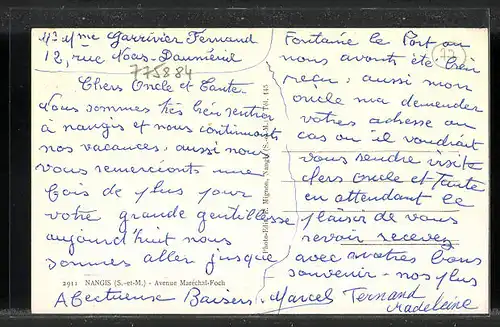 Mr Mme Garrivier Fernand
12, rue Noas-Daumeril
775884
Chers Oncle et Tante
Nous sommes très bien rentrer
à nangis et nous continuons
nos vacances, aussi nous
vous remercions une
fois de plus pour
votre grande gentillesse
aujourd'huit nous
sommes aller jusque
Fontaine le Port ou
nous avont été bien
reçu; aussi mon
oncle ma demender
votres adresse au
cas ou il voudrait
vous rendre visite
chers oncle et Tante
en attendant le
plaisir de vous
revoir recevez
avec votres bons
souvenir - nos plus
Afectueuse Baisers. Marcel Fernand
Madeleine
2911 NANGIS (S.-et-M.) - Avenue Maréchal-Foch
Photo-Edit. Mignon, Nangis (S.-et-M.) - Tél. 145
77